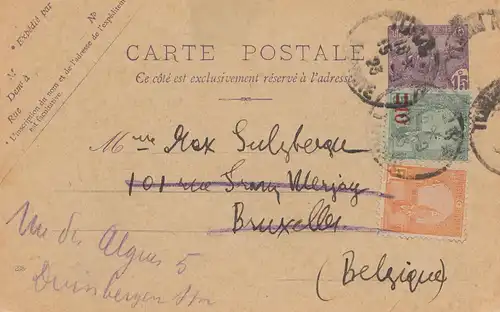 * Expédié par
No
M
Deme à
Rue
* L'inscription du nom et de l'adresse de l'expéditeur
est facultative.
CARTE POSTALE
Ce côté est exclusivement réservé à l'adresse.
15
Mme Max Sulzberger
101 rue Franz Merjay
Bruxelles
(Belgique)
Rue des Algues 5
Duinbergen s/m